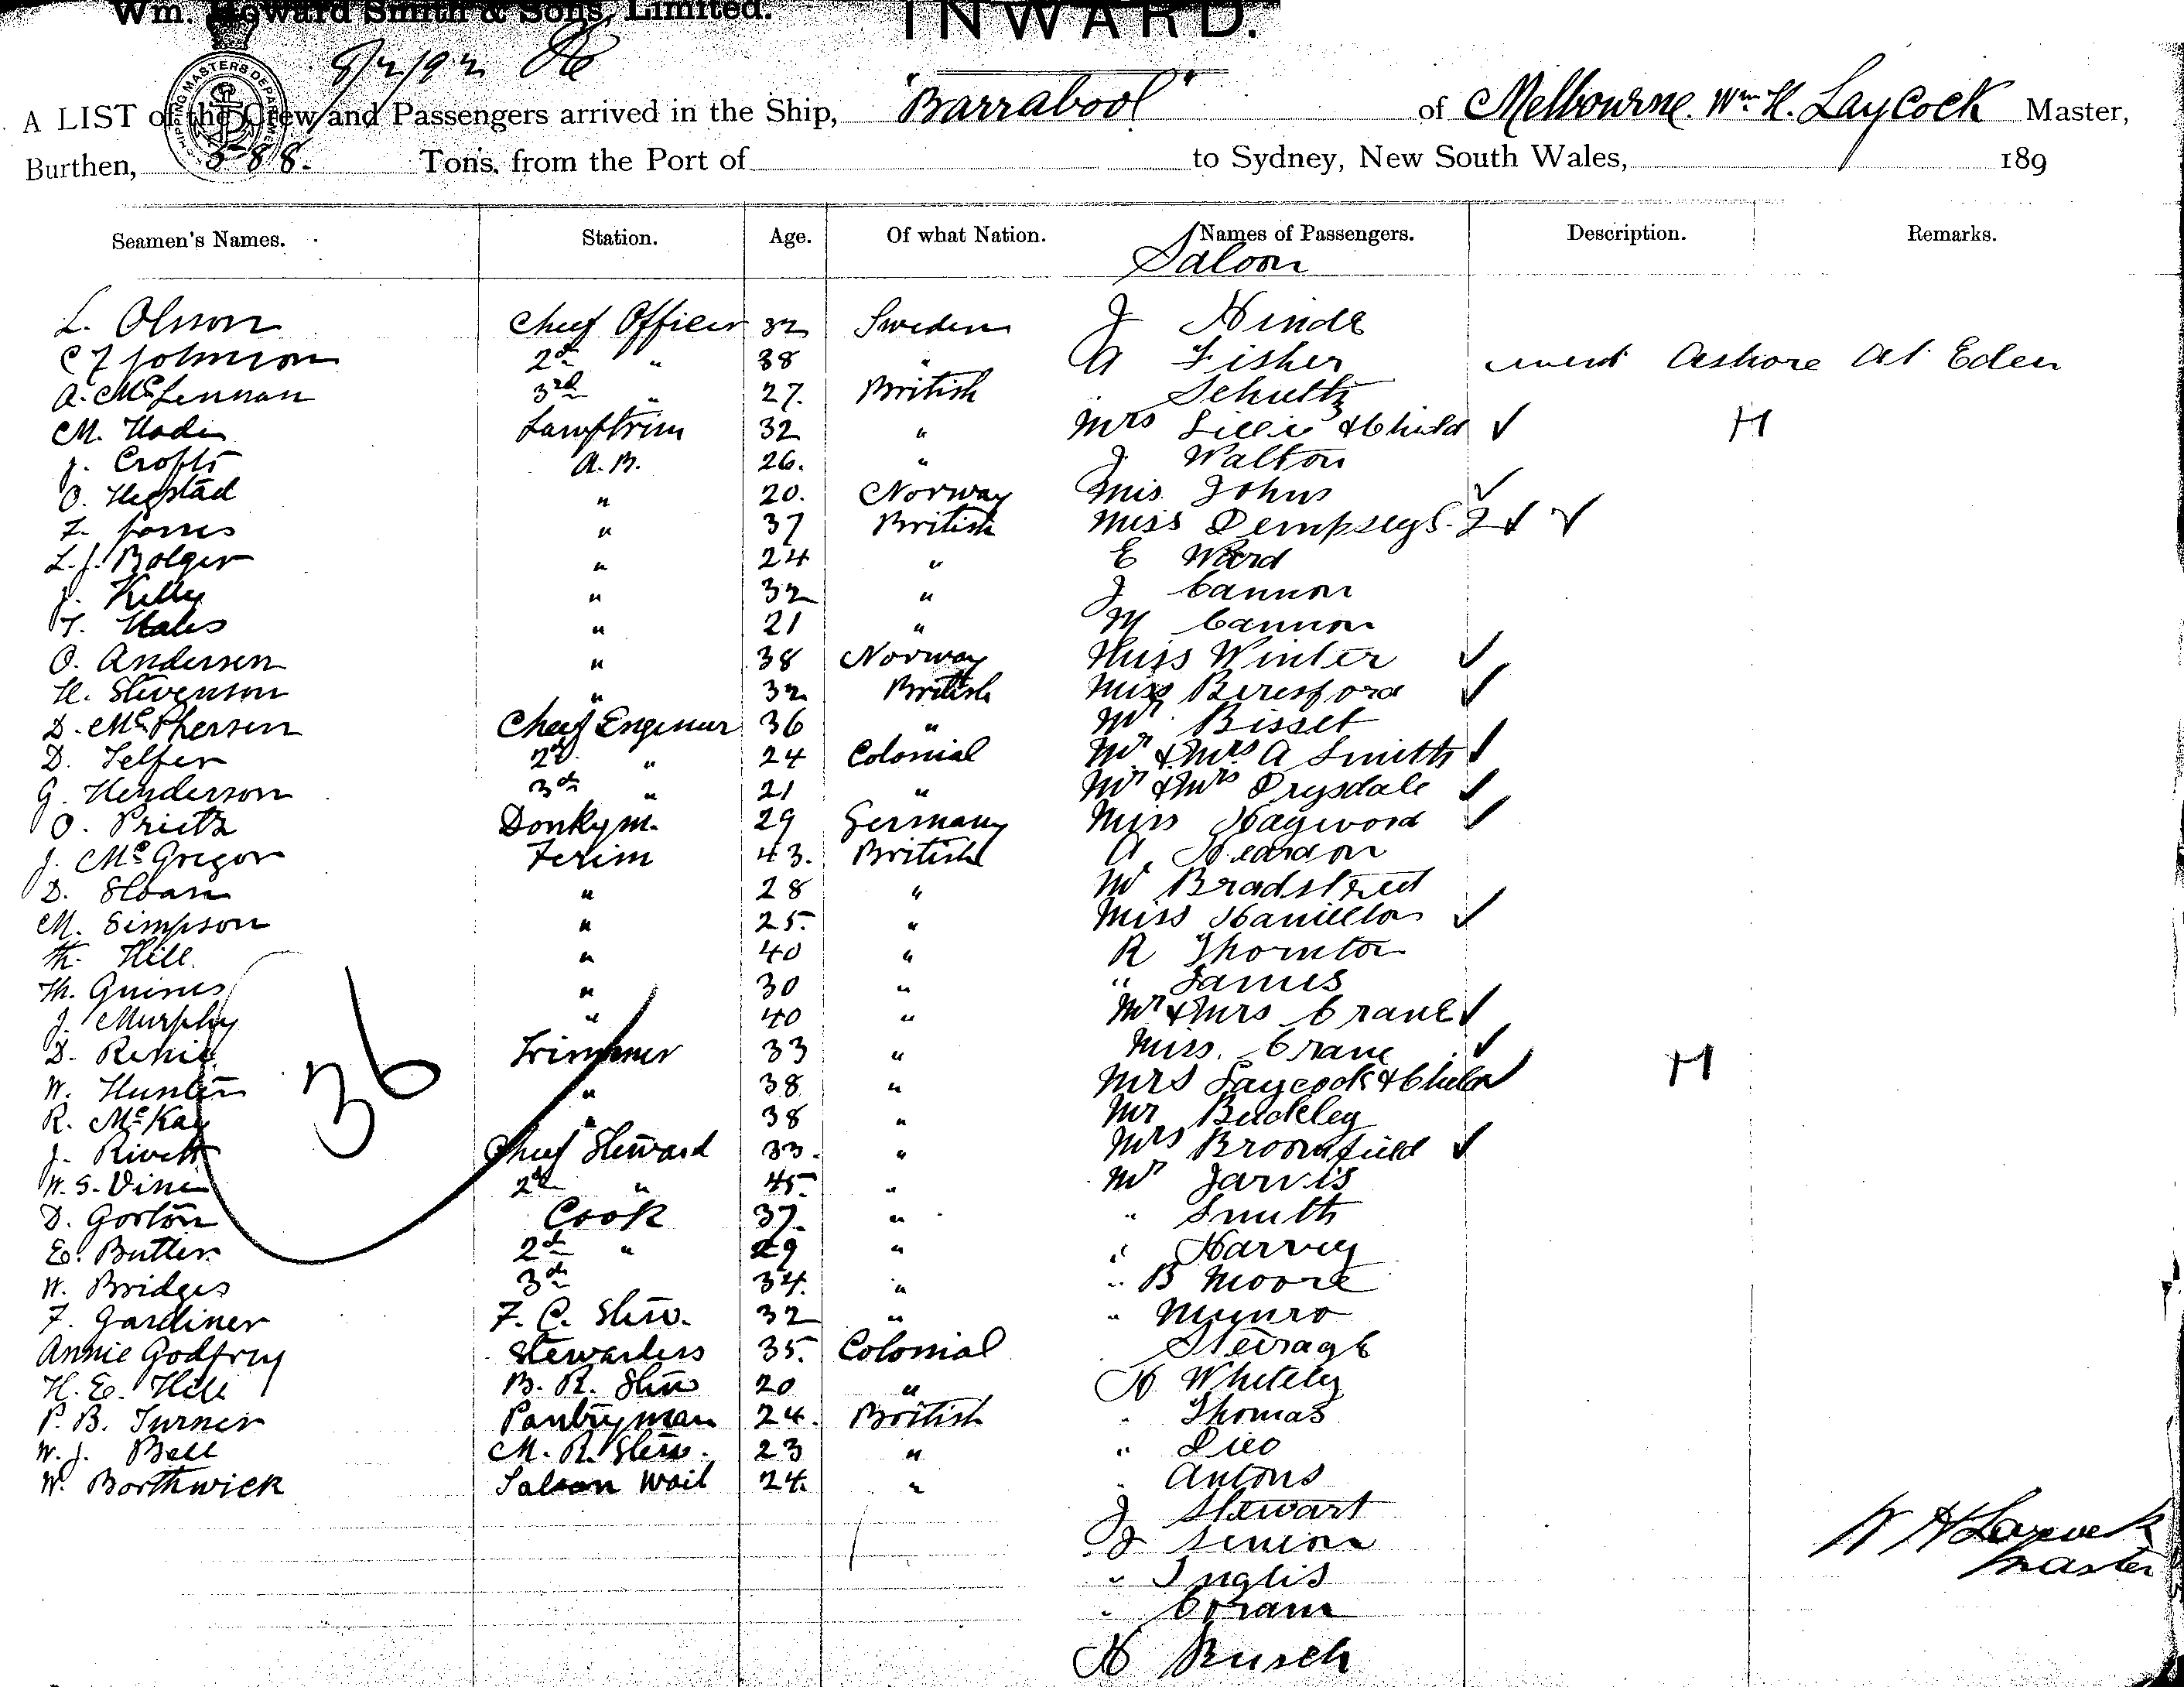 Wm. Howard Smith & Sons, Limited.
INWARD.
8/2/92
SHIPPING MASTERS DEPARTMENT
A LIST of the Crew and Passengers arrived in the Ship, "Barrabool" of Melbourne. Wm. H. Laycock Master,
Burthen, 588. Tons, from the Port of to Sydney, New South Wales, 189
Seamen's Names. Station. Age. Of what Nation. Names of Passengers. Description. Remarks.
Saloon
L. Olsson Cheif Officer 32 Sweden J Hinde
C J Johnson 2d " 38 " A Fisher went Ashore At Eden
A. McLennan 3rd " 27. British " Schultz
M. Lamptrim 32 " Mrs Lillie & Child ✓ H
J. Crofts A.B. 26. " J Walton
O. Hegstad " 20. Norway Mis Johns ✓
F. Jones " 37 British Miss Dempseys. 2 ✓ ✓
L.J. Bolger " 24 " E Ward
J. Kelly " 32 " J Cannon
T. Hales " 21 " M Cannon
O. Andersen " 38 Norway Miss Winter ✓
H. Stevenson " 32 British Miss Beresford ✓
D. McPherson Cheif Engineer 36 " Mr. Bisset
D. Telfer 2d " 24 Colonial Mr & Mrs A Smith ✓
G. Henderson 3rd " 21 " Mr & Mrs Drysdale ✓
O. Prietz Donkym. 29 Germany Miss Hayword ✓
J. McGregor Ferim 43. British A. Reardon
D. Sloan " 28 " Mr Bradstreet
M. Simpson " 25. " Miss Hamilton ✓
Th. Hill " 40 " R Thornton
Th. Guines " 30 " " James
J. Murphy " 40 " Mr & Mrs Crane ✓
D. Renie Trimmer 33 " Miss. Crane ✓
36
W. Hunter " 38 " Mrs Laycock & Child ✓ H
R. McKay " 38 " Mr Buckley
J. Rivett Cheif Steward 33. " Mrs Broomfield ✓
W. S. Vine 2d " 45. " Mr Jarvis
D. Gorton Cook 37. " " Smith
E. Butler 2d " 29 " " Harvey
W. Bridges 3d 34. " " B Moore
F. Gardiner F. C. Stew. 32 " " Munro
Annie Godfrey Stewardess 35. Colonial Steirage
H. E. Hill B. R. Stew 20 " H Whiteley
P. B. Turner Pantryman 24. British " Thomas
W. J. Bell M. R. Stew. 23 "
W. Borthwick Saloon Wait 24. " " Antons
J Stewart
J Senior
" Inglis
" Coram
H Rusch
W H Laycock
Master